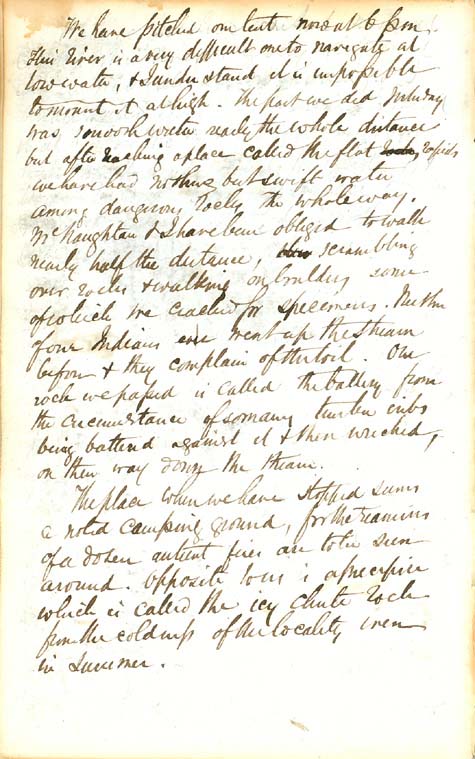 We have pitched our tent now at 6 p.m.
This River is a very difficult one to navigate at
low water, & I understand it is impossible
to mount it at high. The part we did yesterday
was smooth water nearly the whole distance
but after reaching a place called the flat rapids
we have had nothing but swift water
among dangerous rocks the whole way.
McNaughtan & I have been obliged to walk
nearly half the distance, scrambling
over rocks & walking on boulders some
of which we cracked for specimens. Neither
of our Indians ever went up the stream
before & they complain of the toil. One
rock we passed is called the battery from
the circumstance of so many timber cribs
being battered against it & then wrecked,
on their way down the stream.
The place where we have stopped seems
a noted camping ground, for the remains
of a dozen antient fires are to be seen
around. Opposite to us is a precipice
which is called the icy chute rock
from the coldness of the locality even
in summer.